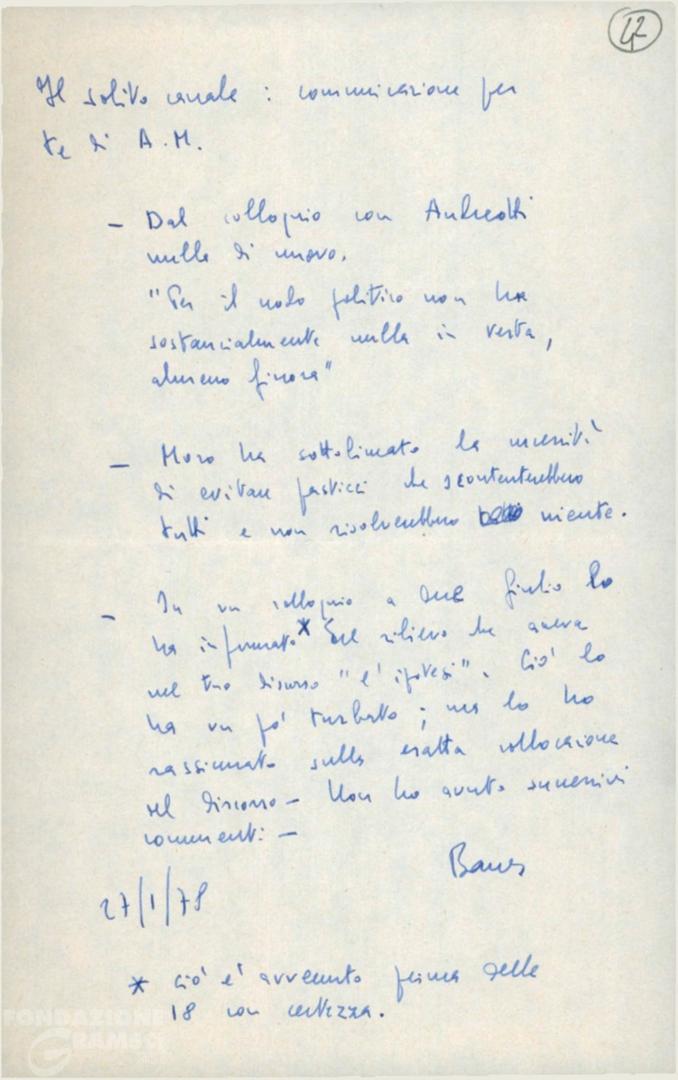 42
Il solito canale : comunicazione per
te di A.M.
- Dal colloquio con Andreotti
nulla di nuovo.
"Per il nodo politico non ha
sostanzialmente nulla in testa,
almeno finora"
- Moro ha sottolineato la necessità
di evitare pasticci che scontenterebbero
tutti e non risolverebbero niente.
- In un colloquio a due Giulio lo
ha informato* del rilievo che aveva
nel tuo discorso "l'ipotesi". Ciò lo
ha un po' turbato ; ma lo ho
rassicurato sulla esatta collocazione
del discorso - Non ho avuto successivi
commenti -
27/1/78
* ciò è avvenuto prima delle
18 con certezza.
FONDAZIONE
GRAMSCI